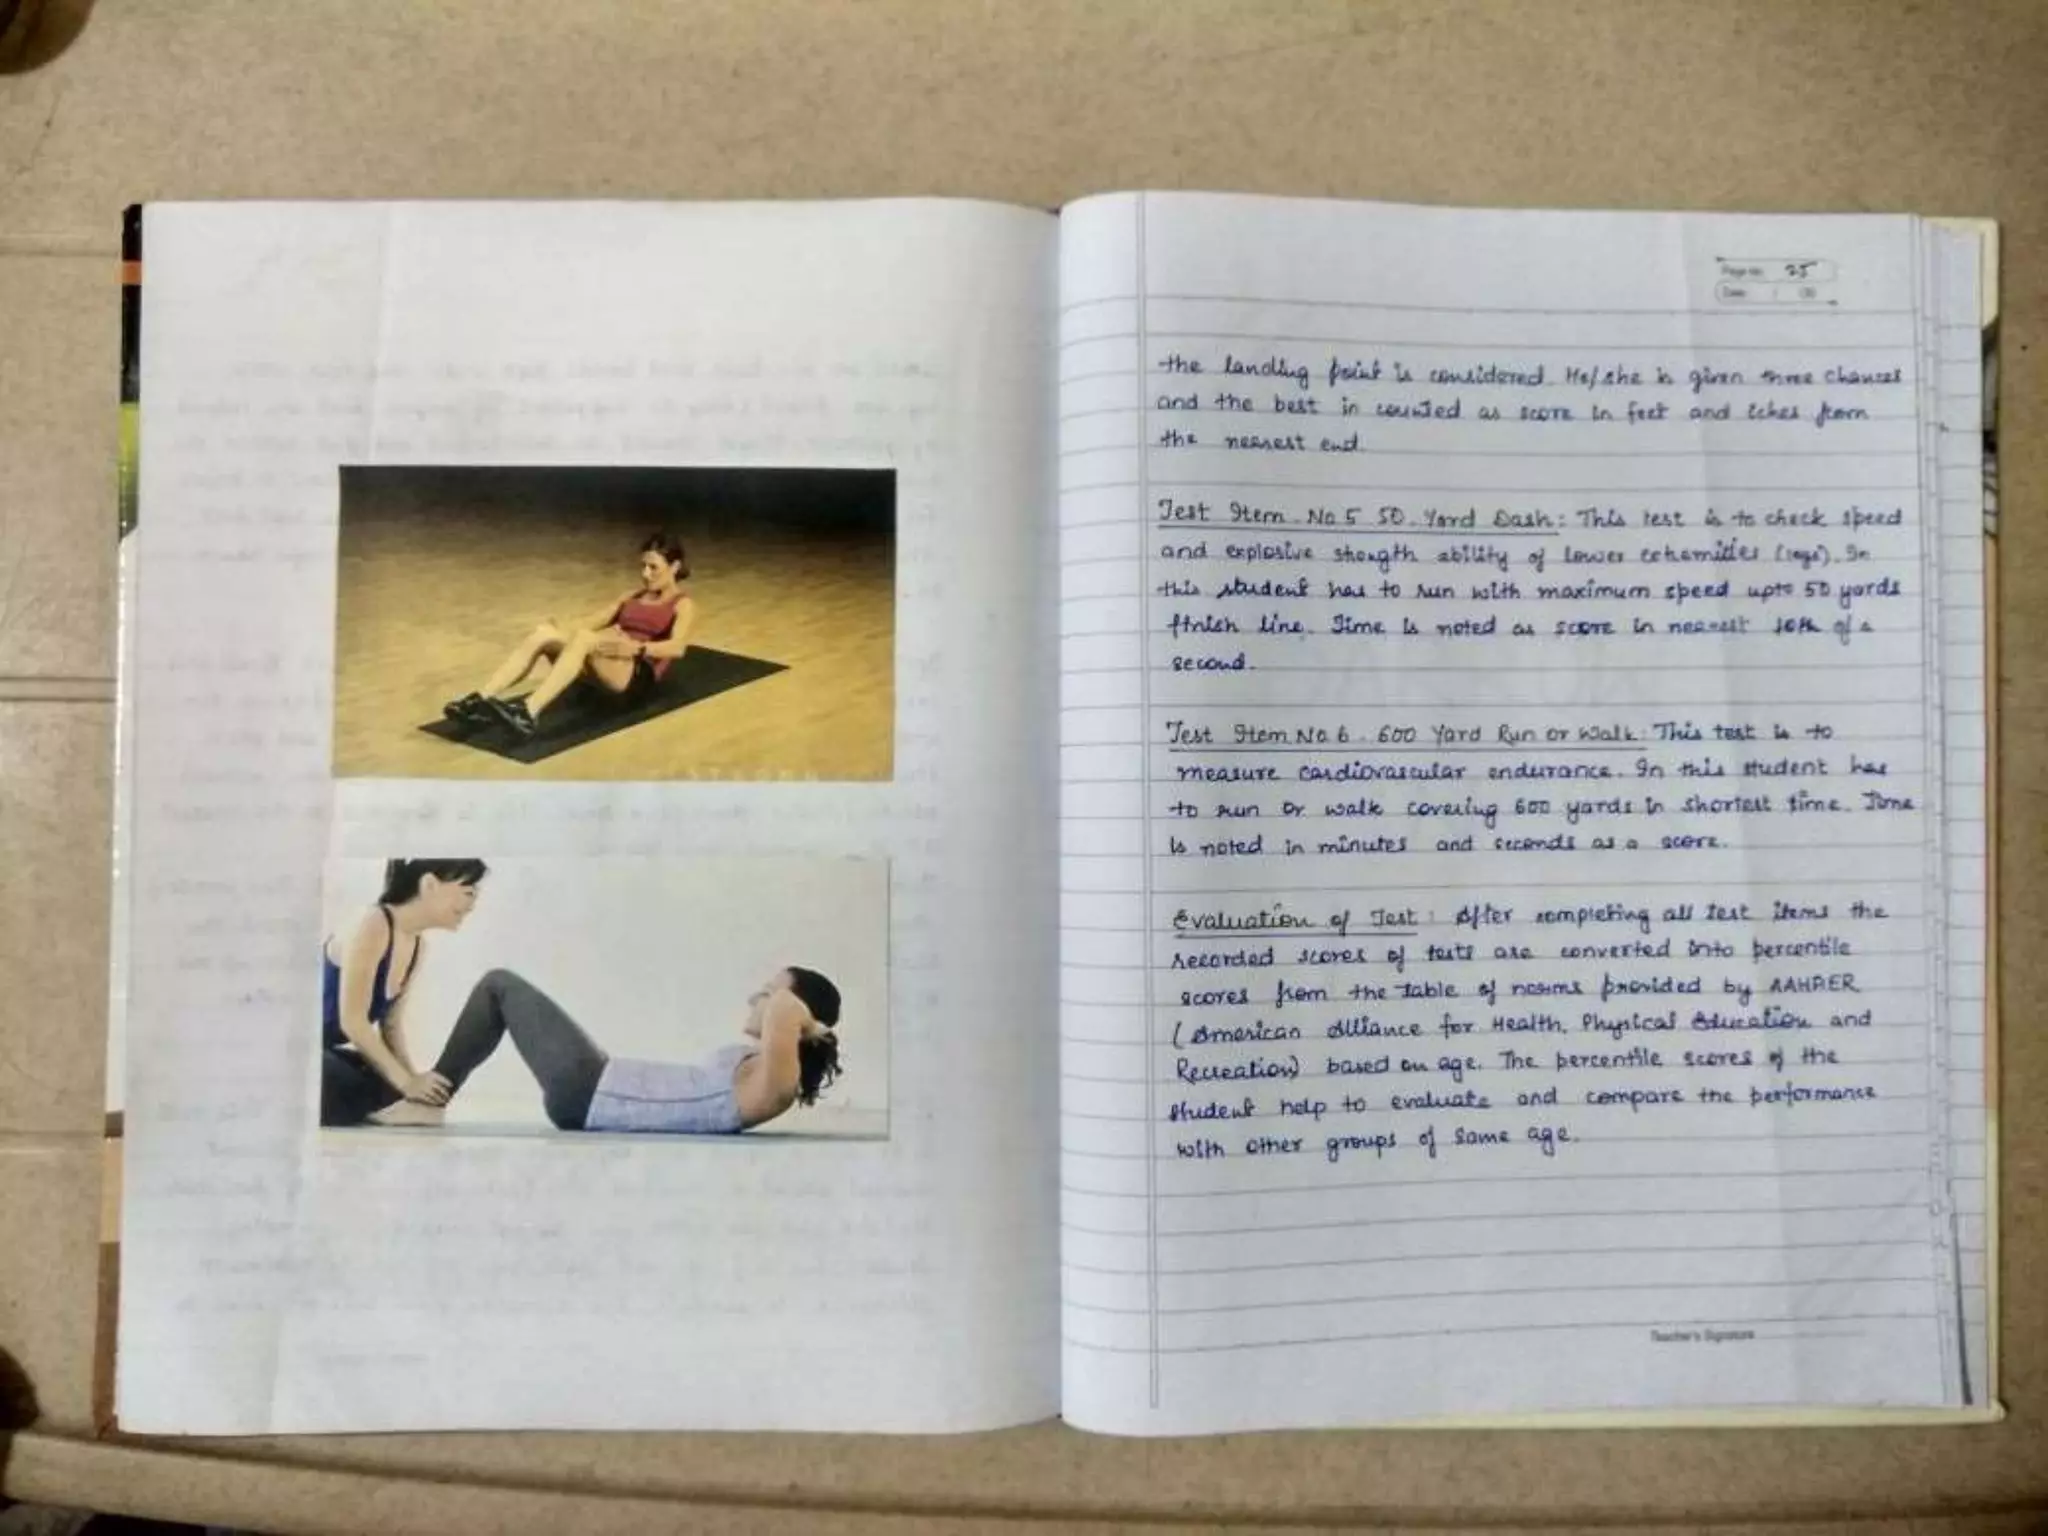 Page No. 25
Date
the landing point is considered. He/she is given three chances
and the best in counted as score in feet and iches from
the nearest end.
Test Item No 5 50. Yard Dash: This test is to check speed
and explosive strength ability of lower extremities (legs). In
this student has to run with maximum speed upto 50 yards
finish line. Time is noted as score in nearest 10th of a
second.
Test Item No 6. 600 Yard Run or Walk: This test is to
measure cardiovascular endurance. In this student has
to run or walk covering 600 yards in shortest time. Time
is noted in minutes and seconds as a score.
Evaluation of Test: After completing all test items the
recorded scores of tests are converted into percentile
scores from the table of norms provided by AAHPER
(American Alliance for Health, Physical Education and
Recreation) based on age. The percentile scores of the
student help to evaluate and compare the performance
with other groups of same age.
Teacher's Signature